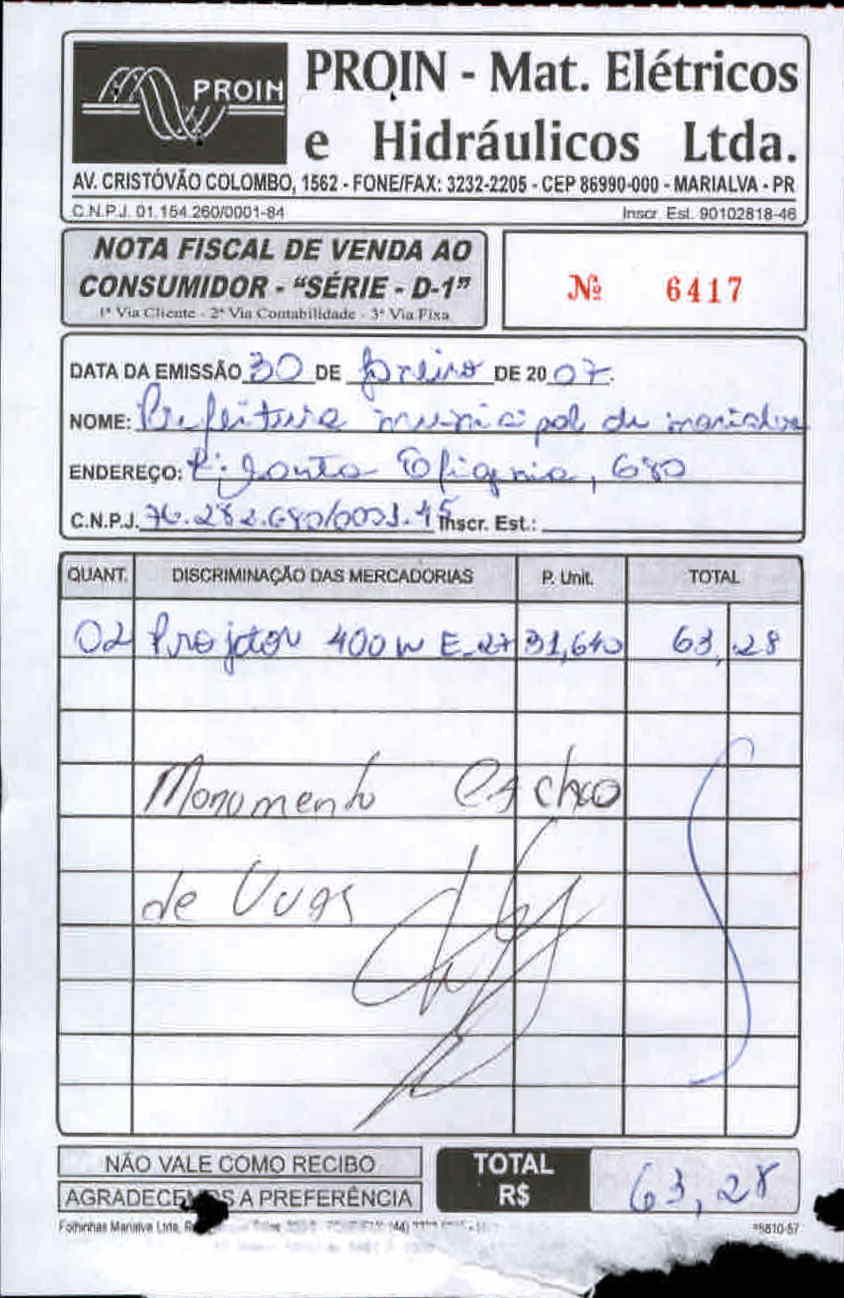 PROIN
PROIN - Mat. Elétricos
e Hidráulicos Ltda.
AV. CRISTÓVÃO COLOMBO, 1562 - FONE/FAX: 3232-2205 - CEP 86990-000 - MARIALVA - PR
C.N.P.J. 01.154.260/0001-84 Inscr. Est. 90102818-46
NOTA FISCAL DE VENDA AO
CONSUMIDOR - "SÉRIE - D-1"
1ª Via Cliente - 2ª Via Contabilidade - 3ª Via Fixa
Nº 6417
DATA DA EMISSÃO 30 DE DE 2007.
NOME: Prefeitura municipal de marialva
ENDEREÇO: R: Santa Efigenia, 680
C.N.P.J. 76.282.680/0001.45 Inscr. Est.:
QUANT. DISCRIMINAÇÃO DAS MERCADORIAS P. Unit. TOTAL
02 Projetor 400 W E-27 31,640 63,28
Monumento
de Uvas
NÃO VALE COMO RECIBO
AGRADECEMOS A PREFERÊNCIA
TOTAL
R$ 63,28
Folhinhas Marialva Ltda.